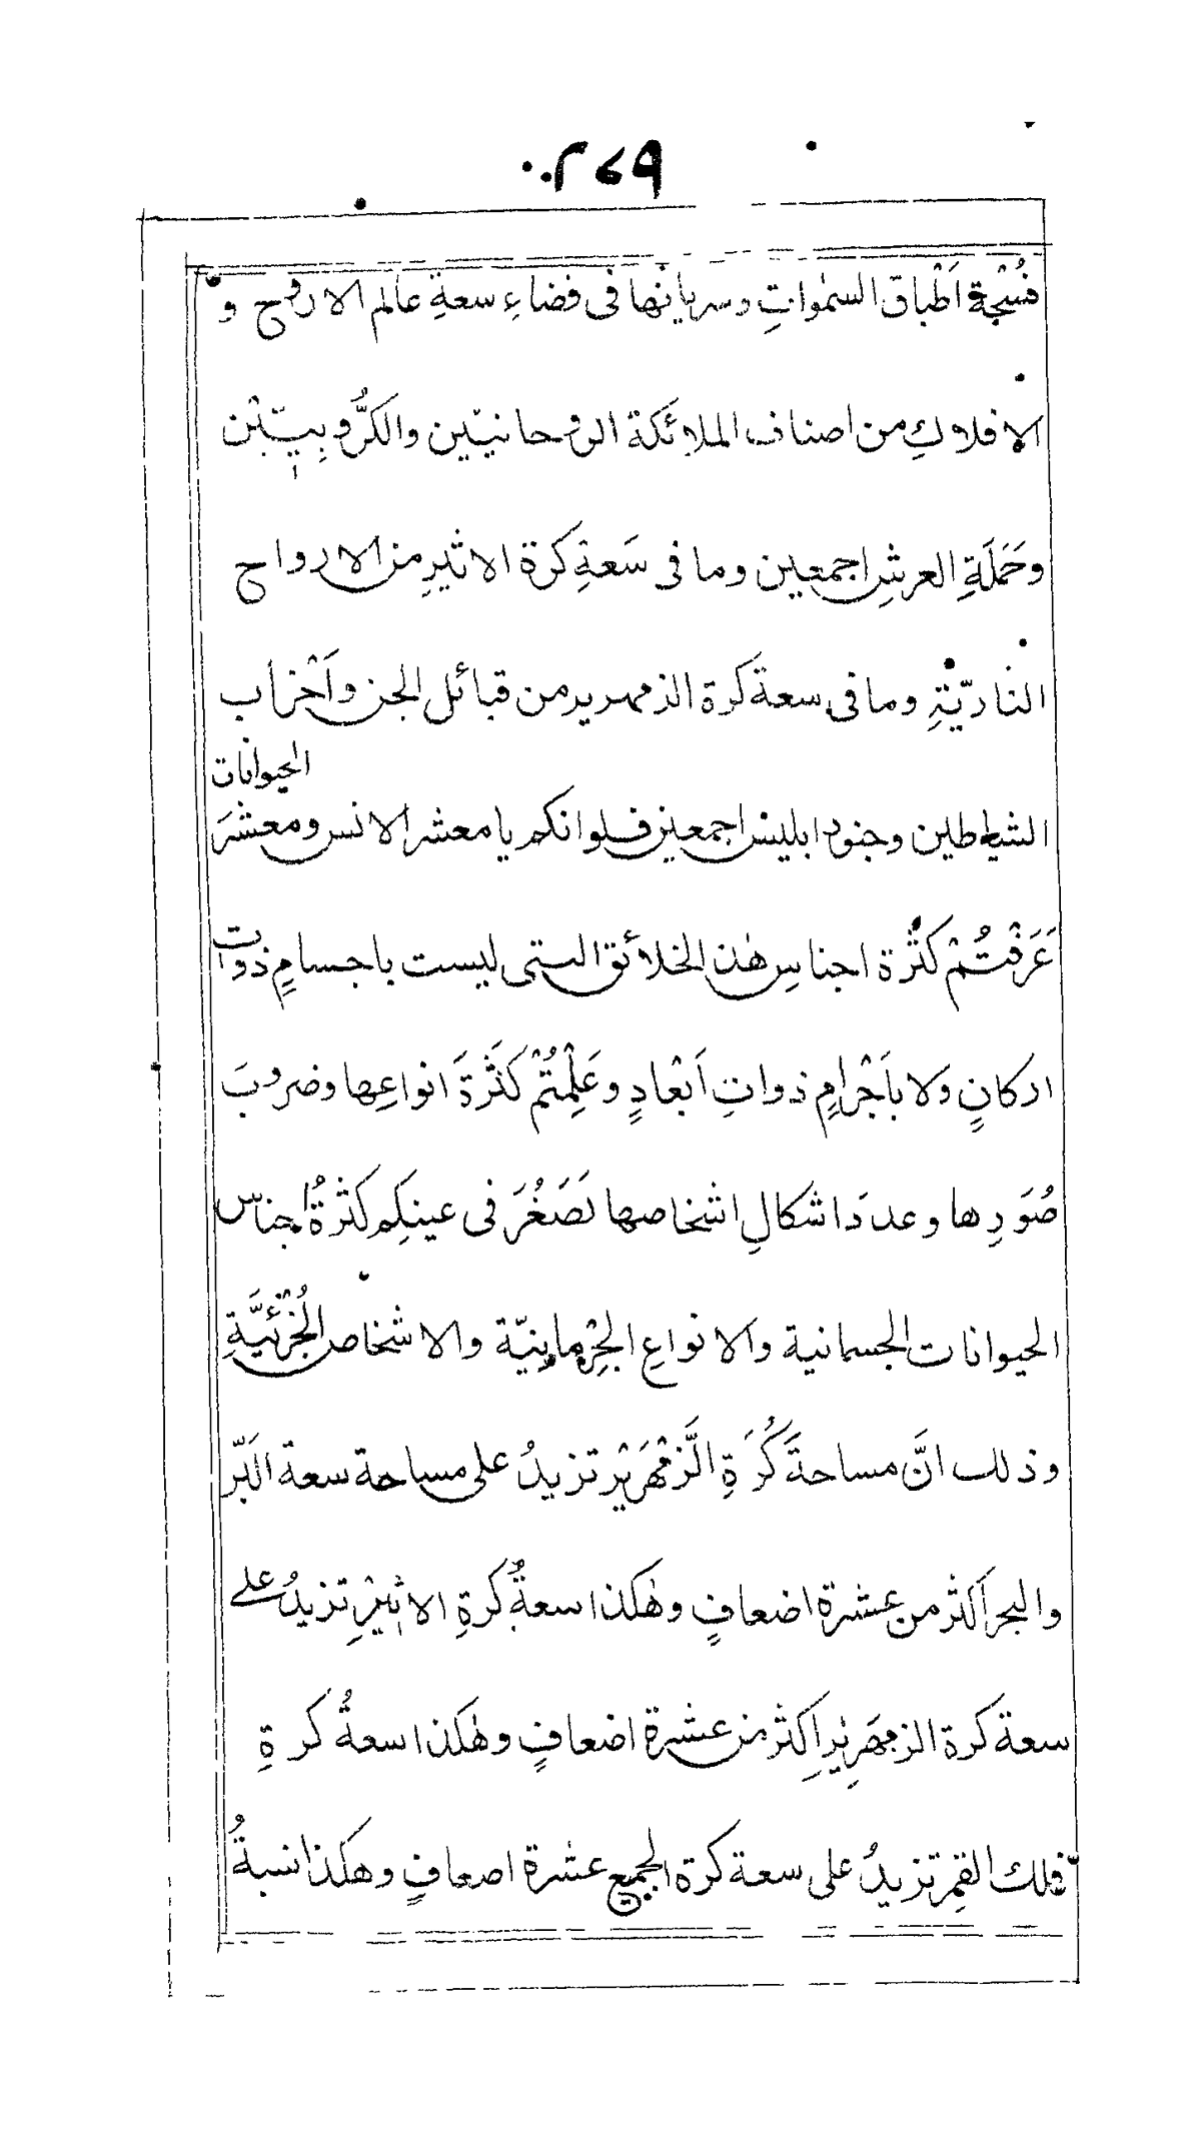 ٢٧٩
فُسْحَةِ اَطْبَاق السمٰواتِ وسريانها فى فضاءِ سعةِ عالم الاروح و
الافلاكِ من اصناف الملائكة الروحانيّين والكَرُّوبِيّيْن
وحَمَلَةِ العرشِ اجمعين وما فى سَعةِ كرة الاثيرِ من الارواح
الناريّةِ وما فى سعة كرة الزمهرير من قبائل الجن واَحْزاب
الشياطين وجنود ابليس اجمعين فلو انكم يا معشر الانس ومعشرَ الحيوانات
عَرَفْتُمْ كثْرة اجناسِ هٰذه الخلائق التى ليست باجسامٍ ذوات
اركانٍ ولا باَجْرامٍ ذواتِ اَبْعادٍ وعَلِمْتُمْ كَثْرةَ انواعِها وضروبَ
صُوَرِها وعددَ اشكالِ اشخاصها لَصَغُرَ فى عينكِم كثرةُ اجناس
الحيوانات الجسمانية والانواعِ الجِرْمانِيّة والاشخاص الجُزْئيَّةِ
وذلك انَّ مساحةَ كُرَةِ الزَّمْهَرِيْر تزيدُ على مساحة سعة البَرّ
والبحر اَكثر من عشرة اضعافٍ وهٰكذا سعةُ كرةِ الاثِيْرِ تزيدُ على
سعة كرة الزمهَرِيْرِ اكثر من عشرة اضعافٍ وهٰكذا سعةُ كرةِ
فلك القمِر تزيدُ على سعة كرة الجميع عشرة اضعافٍ وهكذا نسبةُ